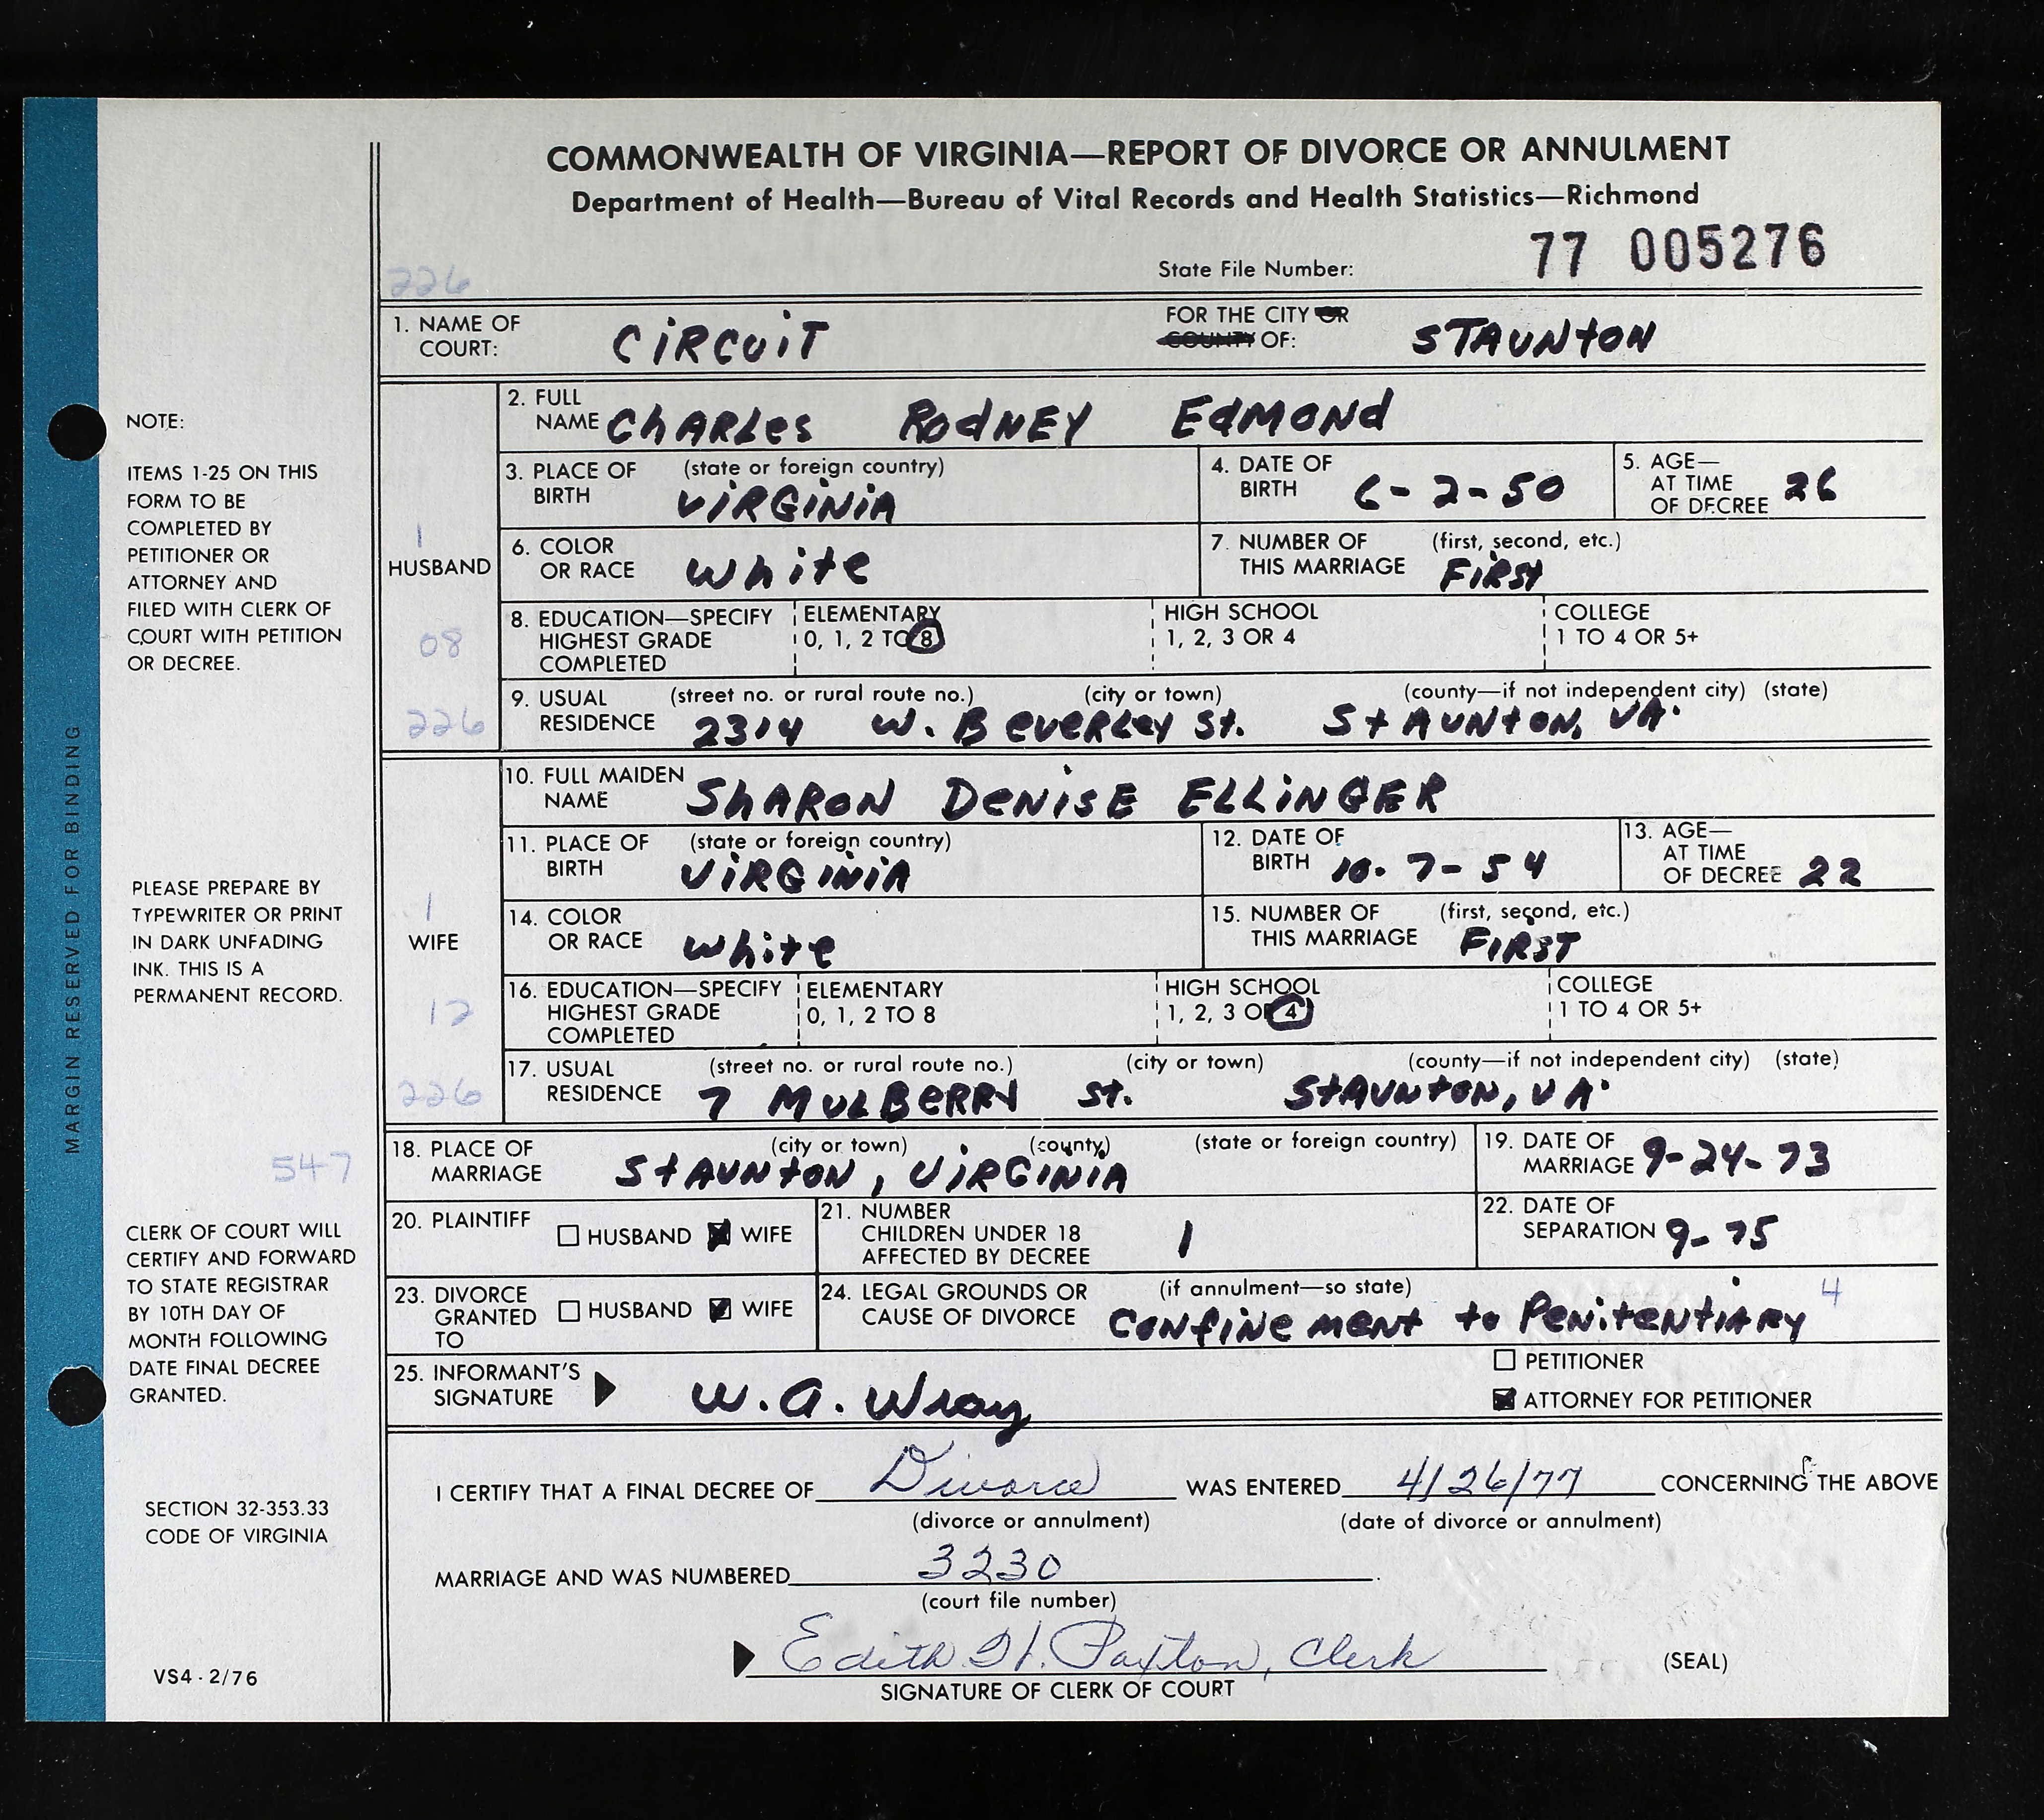 COMMONWEALTH OF VIRGINIA—REPORT OF DIVORCE OR ANNULMENT
Department of Health—Bureau of Vital Records and Health Statistics—Richmond
State File Number: 77 005276
226
1. NAME OF COURT: CIRCUIT FOR THE CITY OR COUNTY OF: STAUNTON
HUSBAND
1
08
226
2. FULL NAME CHARLES RODNEY EDMOND
3. PLACE OF BIRTH (state or foreign country) VIRGINIA
4. DATE OF BIRTH 6-2-50
5. AGE—AT TIME OF DECREE 26
6. COLOR OR RACE White
7. NUMBER OF THIS MARRIAGE (first, second, etc.) FIRST
8. EDUCATION—SPECIFY HIGHEST GRADE COMPLETED
ELEMENTARY 0, 1, 2 TO 8
HIGH SCHOOL 1, 2, 3 OR 4
COLLEGE 1 TO 4 OR 5+
9. USUAL RESIDENCE (street no. or rural route no.) (city or town) (county—if not independent city) (state)
2314 W. BEVERLEY St. STAUNTON, VA.
WIFE
1
12
226
10. FULL MAIDEN NAME SHARON DENISE ELLINGER
11. PLACE OF BIRTH (state or foreign country) VIRGINIA
12. DATE OF BIRTH 10-7-54
13. AGE—AT TIME OF DECREE 22
14. COLOR OR RACE White
15. NUMBER OF THIS MARRIAGE (first, second, etc.) FIRST
16. EDUCATION—SPECIFY HIGHEST GRADE COMPLETED
ELEMENTARY 0, 1, 2 TO 8
HIGH SCHOOL 1, 2, 3 OR 4
COLLEGE 1 TO 4 OR 5+
17. USUAL RESIDENCE (street no. or rural route no.) (city or town) (county—if not independent city) (state)
7 MULBERRY St. STAUNTON, VA.
547
18. PLACE OF MARRIAGE (city or town) (county) (state or foreign country) STAUNTON, VIRGINIA
19. DATE OF MARRIAGE 9-24-73
20. PLAINTIFF HUSBAND WIFE
21. NUMBER CHILDREN UNDER 18 AFFECTED BY DECREE 1
22. DATE OF SEPARATION 9-75
23. DIVORCE GRANTED TO HUSBAND WIFE
24. LEGAL GROUNDS OR CAUSE OF DIVORCE (if annulment—so state) Confinement to Penitentiary 4
25. INFORMANT'S SIGNATURE W. A. Wray
PETITIONER
ATTORNEY FOR PETITIONER
I CERTIFY THAT A FINAL DECREE OF Divorce WAS ENTERED 4/26/77 CONCERNING THE ABOVE
(divorce or annulment) (date of divorce or annulment)
MARRIAGE AND WAS NUMBERED 3230
(court file number)
Edith H. Paxton, Clerk
SIGNATURE OF CLERK OF COURT
(SEAL)
MARGIN RESERVED FOR BINDING
NOTE:
ITEMS 1-25 ON THIS
FORM TO BE
COMPLETED BY
PETITIONER OR
ATTORNEY AND
FILED WITH CLERK OF
COURT WITH PETITION
OR DECREE.
PLEASE PREPARE BY
TYPEWRITER OR PRINT
IN DARK UNFADING
INK. THIS IS A
PERMANENT RECORD.
CLERK OF COURT WILL
CERTIFY AND FORWARD
TO STATE REGISTRAR
BY 10TH DAY OF
MONTH FOLLOWING
DATE FINAL DECREE
GRANTED.
SECTION 32-353.33
CODE OF VIRGINIA
VS4-2/76